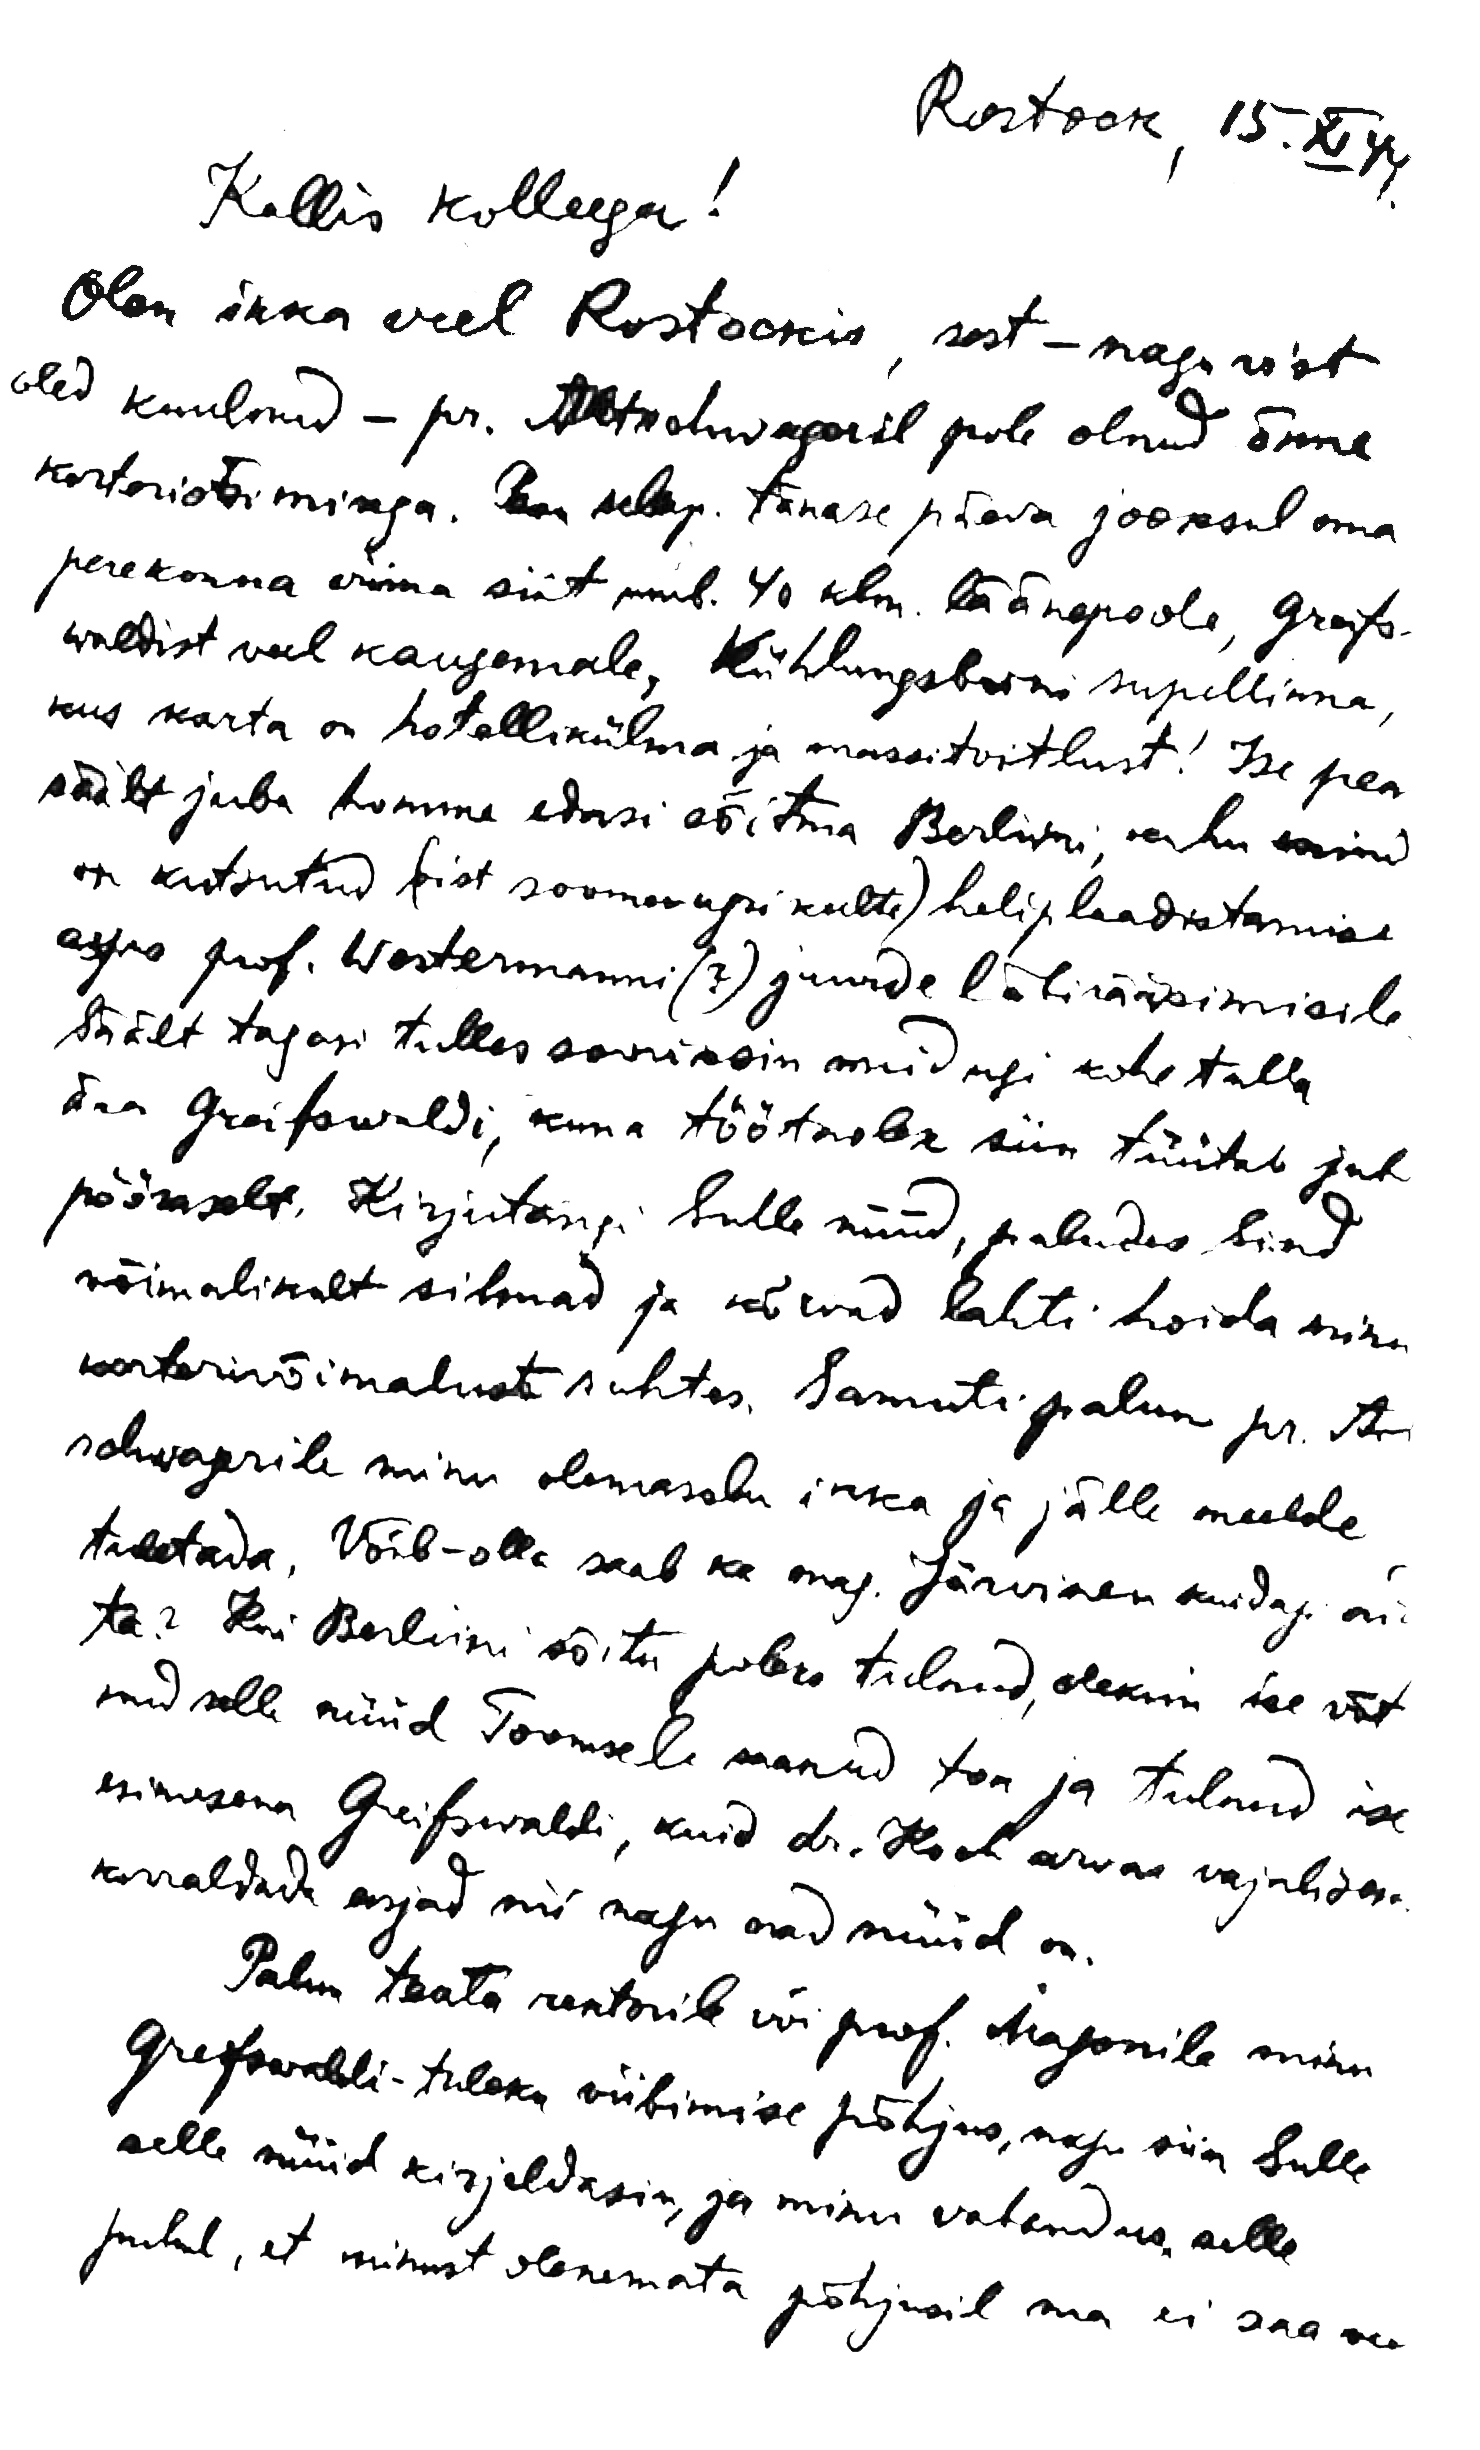 Rostock, 15. XI 44.
Kallis kolleega!
Olen ikka veel Rostockis, sest – nagu vist
oled kuulnud – pr. Altschwageril pole olnud õnne
korteriotsimisega. Pean seep. tänase päeva jooksul oma
perekonna viima siit umb. 40 klm. läänepoole, Greifs-
waldist veel kaugemale, Kühlungsborni supellinna,
kus karta on hotellikülma ja massitoitlust! Ise pean
säält juba homme edasi sõitma Berliini, kuhu mind
on kutsutud (vist soomeugri keelte) heliplaadistamise
asjus prof. Westermanni (?) juurde läbirääkimisile.
Säält tagasi tulles sooviksin muidugi kohe tulla
ära Greifswaldi, kuna töötaolek siin tüütab juba
pööraselt. Kirjutangi Sulle nüüd, paludes Sind
võimalikult silmad ja kõrvad lahti hoida minu
korterivõimaluste suhtes. Samuti palun pr. Alt
schwagerile minu olemasolu ikka ja jälle meelde
tuletada. Võib-olla saab ka mag. Järvinen kuidagi ai
ta? Kui Berliini sõitu poleks tulnud, oleksin ise võt
nud selle nüüd Toomsele saanud toa ja tulnud ise
esimesena Greifswaldi, kuid dr. Koch arvas vajalisena
korraldada asjad nii nagu nad nüüd on.
Palun teata rektorile või prof. Magonile minu
Greifswaldi-tuleku viibimise põhjus, nagu siin Sulle
selle nüüd kirjeldasin, ja minu vabandus selle
puhul, et minust olenemata põhjusil ma ei saa